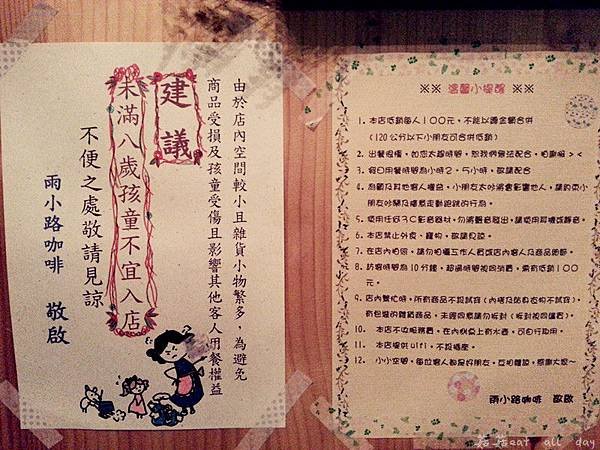 由於店內空間較小且雜貨小物繁多，為避免
商品受損及孩童受傷且影響其他客人用餐權益
建議
未滿八歲孩童不宜入店
不便之處敬請見諒
雨小路咖啡 敬啟
※※ 溫馨小提醒 ※※
1. 本店低銷每人１００元，不能以總金額合併
（120公分以下小朋友可合併低銷）
2. 出餐很慢，如您太趕時間，恕我們無法配合，抱歉啦><
3. 假日用餐時間為小時２，
敬請配合
4. 為顧及其他客人權益，小朋友太吵鬧會影響他人，請約束小
朋友吵鬧及
走動追跑的行為。
5. 使用任何３Ｃ影音器材，勿將聲音發出，請使用耳機或靜音。
6. 本店禁止外食、寵物，敬請見諒。
7. 在店內拍照，請勿拍攝工作人員或店內客人及商品
8. 訪客時間為10分鐘，超過時間視同消費，需有低銷１００
元。
9. 店內繁忙時，所有商品不設試穿
有包裝的雜貨商品，未經同意請勿拆封（拆封視同購買）。
10. 本店不收服務費，在內側桌上有水壺，可自行取用。
11. 本店提供wifi，不設插座。
12. 小小空間，每位客人都是好朋友，互相體諒，感謝大家~
雨小路咖啡 敬啟
eat all day